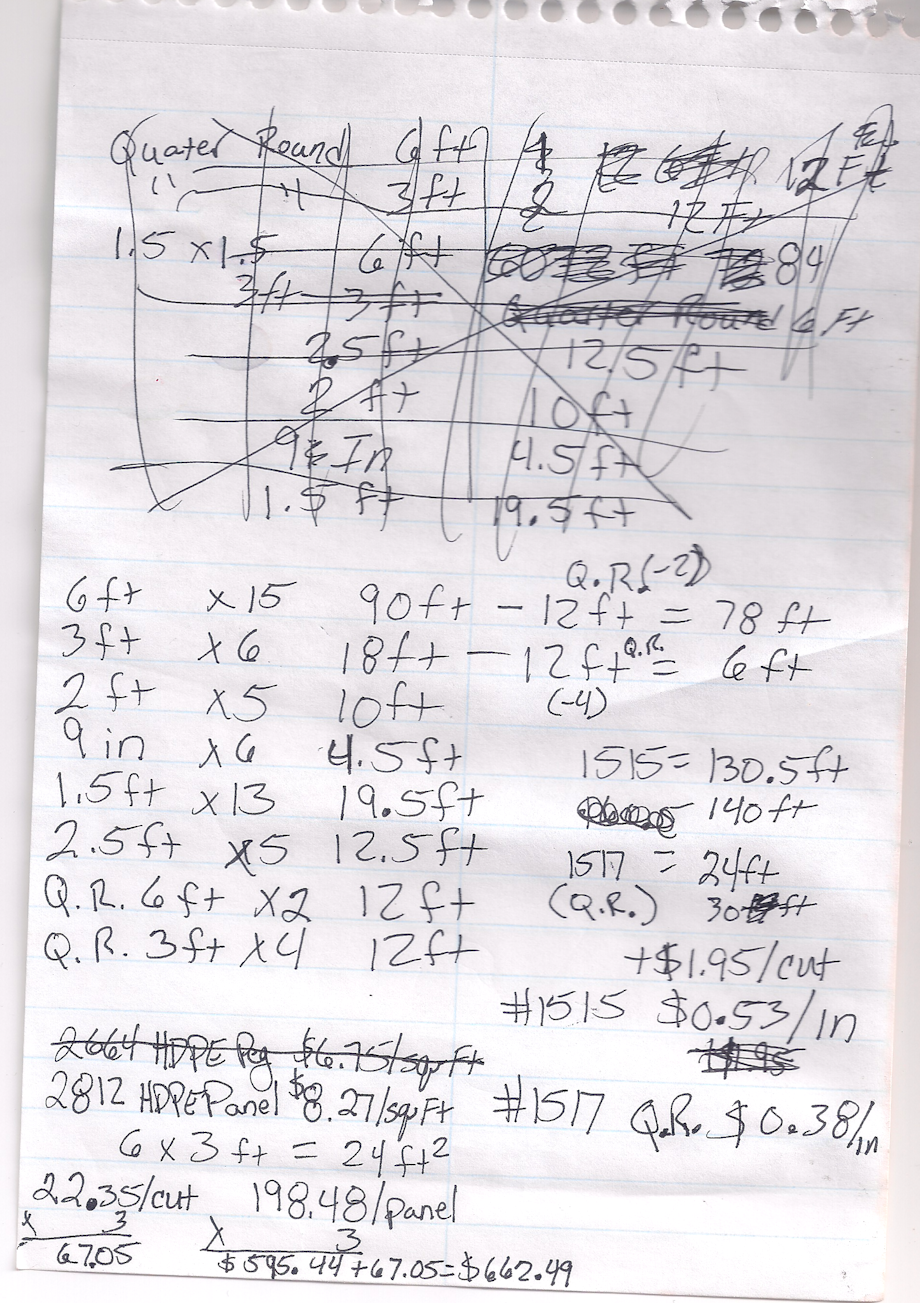 Quater Round 6 ft 1 12 Ft
" " 3 ft 2 12 Ft
1.5 x 1.5 6 ft 84
3ft 3 ft Quarter Round 6 Ft
2.5 ft 12.5 ft
2 ft 10 ft
9 In 4.5 ft
1.5 ft 19.5 ft
Q.R. (-2)
6 ft x 15 90 ft - 12 ft = 78 ft
3 ft x 6 18 ft - 12 ft Q.R. = 6 ft
2 ft x 5 10 ft (-4)
9 in x 6 4.5 ft 1515 = 130.5 ft
1.5 ft x 13 19.5 ft 140 ft
2.5 ft x 5 12.5 ft 1517 = 24 ft
Q.R. 6 ft x 2 12 ft (Q.R.) 30 ft
Q.R. 3 ft x 4 12 ft +$1.95/cut
#1515 $0.53/in
2664 HDPE Peg $6.75/sqft
2812 HDPE Panel $8.27/sqFt #1517 Q.R. $0.38/in
6 x 3 ft = 24 ft²
22.35/cut 198.48/panel
x 3 x 3
67.05 $595.44 + 67.05 = $662.49